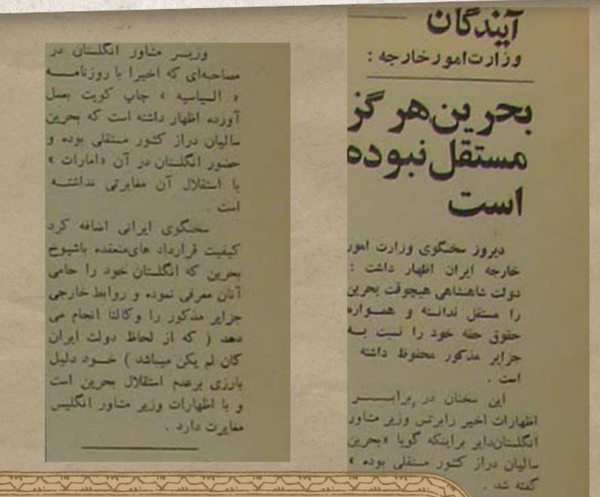 آیندگان
وزارت امور خارجه :
بحرین هرگز
مستقل نبوده
است
دیروز سخنگوی وزارت امور
خارجه ایران اظهار داشت :
دولت شاهنشاهی هیچوقت بحرین
را مستقل ندانسته و همواره
حقوق حقه خود را نسبت به
جزایر مذکور محفوظ داشته
است .
این سخنان در برابر
اظهارات اخیر رابرتس وزیر مشاور
انگلستان دایر براینکه گویا «بحرین
سالیان دراز کشور مستقلی بوده »
گفته شد .
وزیر مشاور انگلستان در
مصاحبه‌ای که اخیرا با روزنامه
« السیاسیه » چاپ کویت بعمل
آورده اظهار داشته است که بحرین
سالیان دراز کشور مستقلی بوده و
حضور انگلستان در آن «امارات »
با استقلال آن مغایرتی نداشته
است .
سخنگوی ایرانی اضافه کرد
کیفیت قرارداد های منعقده باشیوخ
بحرین که انگلستان خود را حامی
آنان معرفی نموده و روابط خارجی
جزایر مذکور را وکالتا انجام می
دهد ( که از لحاظ دولت ایران
کان لم یکن میباشد ) خود دلیل
بارزی برعدم استقلال بحرین است
و با اظهارات وزیر مشاور انگلیس
مغایرت دارد .